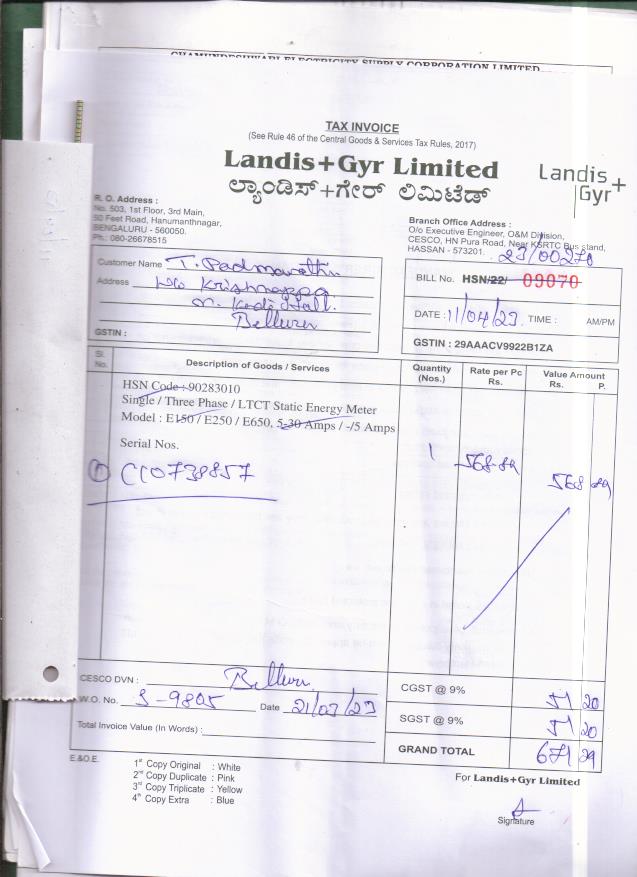 CHAMUNDESHWARI ELECTRICITY SUPPLY CORPORATION LIMITED
TAX INVOICE
(See Rule 46 of the Central Goods & Services Tax Rules, 2017)
Landis+Gyr Limited
ಲ್ಯಾಂಡಿಸ್+ಗೇರ್ ಲಿಮಿಟೆಡ್
Landis+
Gyr
R. O. Address :
No. 503, 1st Floor, 3rd Main,
50 Feet Road, Hanumanthnagar,
BENGALURU - 560050.
Ph.: 080-26678515
Branch Office Address :
O/o Executive Engineer, O&M Division,
CESCO, HN Pura Road, Near KSRTC Bus stand,
HASSAN - 573201.
23/00270
Customer Name T. Padmavathi
Address W/o Krishnappa
Belluru
GSTIN :
BILL No. HSN/22/ 09070
DATE : 11/04/23 TIME : AM/PM
GSTIN : 29AAACV9922B1ZA
Sl. No. Description of Goods / Services Quantity (Nos.) Rate per Pc Rs. Value Amount Rs. P.
HSN Code : 90283010
Single / Three Phase / LTCT Static Energy Meter
Model : E150 / E250 / E650, 5-30 Amps / -/5 Amps
Serial Nos.
1 568-89 568 89
① CC0738857
CESCO DVN : Belluru
W.O. No. S-9805 Date 21/03/23
Total Invoice Value (In Words) :
CGST @ 9% 51 20
SGST @ 9% 51 20
GRAND TOTAL 671 29
E.&O.E.
1st Copy Original : White
2nd Copy Duplicate : Pink
3rd Copy Triplicate : Yellow
4th Copy Extra : Blue
For Landis+Gyr Limited
Signature